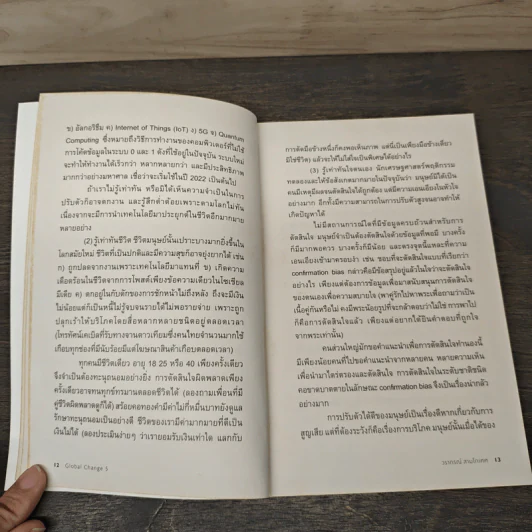 ข) อัลกอริธึม ค) Internet of Things (IoT) ง) 5G จ) Quantum
Computing ซึ่งหมายถึงวิธีการทำงานของคอมพิวเตอร์ที่ไม่ใช้
การโค้ดข้อมูลในระบบ 0 และ 1 ดังที่ใช้อยู่ในปัจจุบัน ระบบใหม่
จะทำให้ทำงานได้เร็วกว่า หลากหลายกว่า และมีประสิทธิภาพ
มากกว่าอย่างมหาศาล เชื่อว่าจะเริ่มใช้ในปี 2022 เป็นต้นไป
ถ้าเราไม่รู้เท่าทัน หรือมิได้เห็นความจำเป็นในการ
ปรับตัวก็อาจตกงาน และรู้สึกต่ำต้อยเพราะตามโลกไม่ทัน
เนื่องจากจะมีการนำเทคโนโลยีมาประยุกต์ในชีวิตอีกมากมาย
หลายอย่าง
(2) รู้เท่าทันชีวิต ชีวิตมนุษย์นั้นเปราะบางมากยิ่งขึ้นใน
โลกสมัยใหม่ ชีวิตที่เป็นปกติและมีความสุขก็อาจยุ่งยากได้ เช่น
ก) ถูกปลดจากงานเพราะเทคโนโลยีมาแทนที่ ข) เกิดความ
เดือดร้อนในชีวิตจากการโพสต์เพียงข้อความเดียวในโซเชียล
มีเดีย ค) ตกอยู่ในกับดักของการชักหน้าไม่ถึงหลัง ถึงจะมีเงิน
ไม่น้อยแต่ก็เป็นหนี้ไม่รู้จบจนรายได้ไม่พอรายจ่าย เพราะถูก
ปลุกเร้าให้บริโภคโดยสื่อหลากหลายชนิดอยู่ตลอดเวลา
(โทรทัศน์เคเบิลที่รับทางจานดาวเทียมซึ่งคนไทยจำนวนมากใช้
เกือบทุกช่องที่มีนับร้อยมีแต่โฆษณาสินค้าเกือบตลอดเวลา)
ทุกคนมีชีวิตเดียว อายุ 18 25 หรือ 40 เพียงครั้งเดียว
จึงจำเป็นต้องทะนุถนอมอย่างยิ่ง การตัดสินใจผิดพลาดเพียง
ครั้งเดียวอาจทนทุกข์ทรมานตลอดชีวิตได้ (ลองถามเพื่อนที่มี
คู่ชีวิตผิดพลาดดูก็ได้) สร้อยคอทองคำมีค่าไม่กี่หมื่นบาทยังดูแล
รักษาทะนุถนอมเป็นอย่างดี ชีวิตของเรามีค่ามากมายที่ตีเป็น
เงินไม่ได้ (ลองประเมินง่ายๆ ว่าเรายอมรับเงินเท่าใด แลกกับ
12 Global Change 3
การตัดมือข้างหนึ่งก็คงพอเห็นภาพ แต่นี่เป็นเพียงมือข้างเดียว
มิใช่ชีวิต) แล้วจะไม่ใส่ใจเป็นพิเศษได้อย่างไร
(3) รู้เท่าทันใจตนเอง นักเศรษฐศาสตร์พฤติกรรม
ทดลองและให้ข้อสังเกตมากมายในปัจจุบันว่า มนุษย์มิได้เป็น
คนมีเหตุมีผลจนตัดสินใจได้ถูกต้อง แต่มีความเอนเอียงในหัวใจ
อย่างมาก อีกทั้งมีความสามารถในการปรับตัวสูงจนอาจทำให้
เกิดปัญหาได้
ไม่มีสถานการณ์ใดที่มีข้อมูลครบถ้วนสำหรับการ
ตัดสินใจ มนุษย์จำเป็นต้องตัดสินใจด้วยข้อมูลที่พอมี บางครั้ง
ก็มีมากพอควร บางครั้งก็มีน้อย และตรงจุดนี้แหละที่ความ
เอนเอียงเข้ามาครอบงำ เช่น ชอบที่จะตัดสินใจแบบที่เรียกว่า
confirmation bias กล่าวคือมีข้อสรุปอยู่แล้วในใจว่าจะตัดสินใจ
อย่างไร เพียงแต่ต้องการข้อมูลเพื่อมาสนับสนุนการตัดสินใจ
ของตนเองเพื่อความสบายใจ (พาคู่รักไปหาพระเพื่อถามว่าเป็น
เนื้อคู่กันหรือไม่ คงมีพระน้อยรูปที่จะกล้าตอบว่าไม่ใช่ การพาไป
ก็คือการตัดสินใจแล้ว เพียงแต่อยากได้ยินคำตอบที่ถูกใจ
จากพระเท่านั้น)
คนส่วนใหญ่มักขอคำแนะนำเพื่อการตัดสินใจทำนองนี้
มีเพียงน้อยคนที่ไปขอคำแนะนำจากหลายคน หลายความเห็น
เพื่อนำมาไตร่ตรองและตัดสินใจ การตัดสินใจในระดับชาติชนิด
คอขาดบาดตายในลักษณะ confirmation bias จึงเป็นเรื่องน่ากลัว
อย่างมาก
การปรับตัวได้ดีของมนุษย์เป็นเรื่องดีหากเกี่ยวกับการ
สูญเสีย แต่ที่ต้องระวังก็คือเรื่องการบริโภค มนุษย์นั้นเมื่อได้ของ
วรากรณ์ สามโกเศศ 13